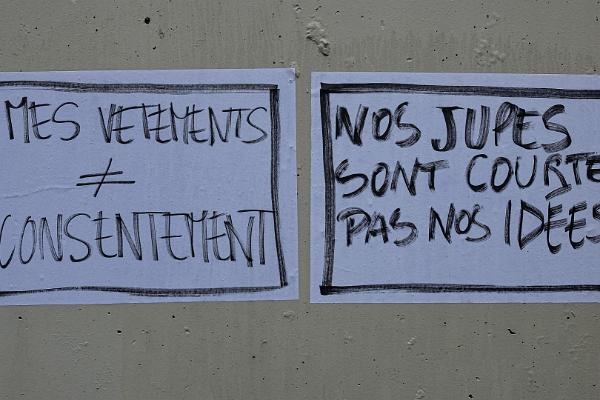 MES VETEMENTS
≠
CONSENTEMENT
NOS JUPES
SONT COURTE
PAS NOS IDÉES